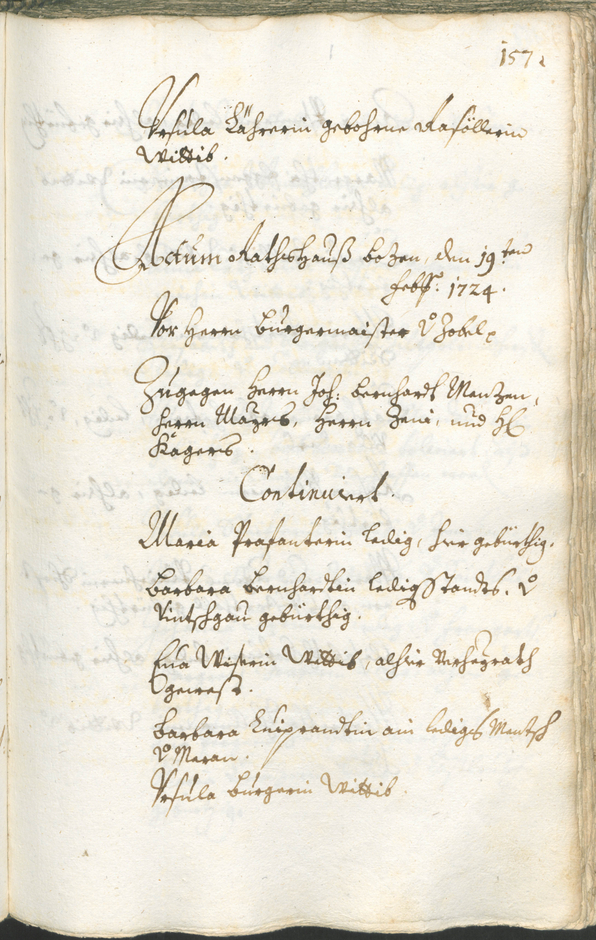 157
Ursula Lährerin gebohrne Rasöllerin
Wittib.
Actum Rathshauß Botzen, den 19ten
Febr: 1724.
Vor Herrn Burgermaister v Zobel
Zugegen Herrn Joh: Bernhardt Mentzen,
Herrn Mayrs, Herrn Zeni, und H
Kagers.
Continuiert.
Maria Prafanterin ledig, hir gebürthig.
Barbara Bernhardtin ledig Standts, v
Vintschgau gebürthig.
Eua Wiserin Wittib, alhir Verheyrath
gewest.
Barbara Luiprandtin ain lediges Mentsch
v Meran.
Ursula Burgerin Wittib.